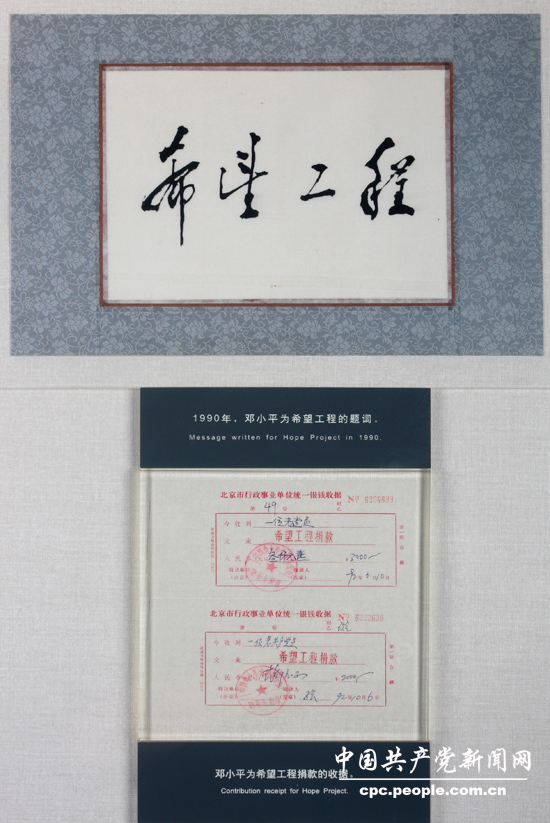 希望工程
1990年，邓小平为希望工程的题词。
Message written for Hope Project in 1990.
北京市行政事业单位统一银钱收据
第 49 号
今收到 一位老党员
交来 希望工程捐款
人民币
北京市行政事业单位统一银钱收据
第 号
今收到 一位老共产党员
交来 希望工程捐款
人民币
92年10月6日
邓小平为希望工程捐款的收据。
Contribution receipt for Hope Project.
中国共产党新闻网
cpc.people.com.cn